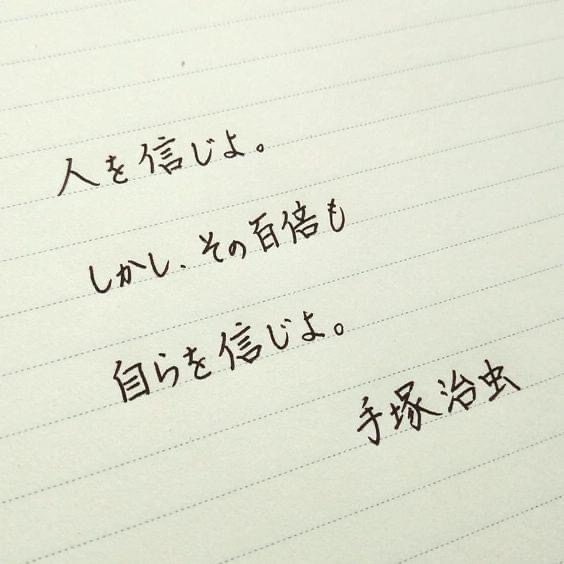 人を信じよ。
しかし、その百倍も
自らを信じよ。
手塚治虫